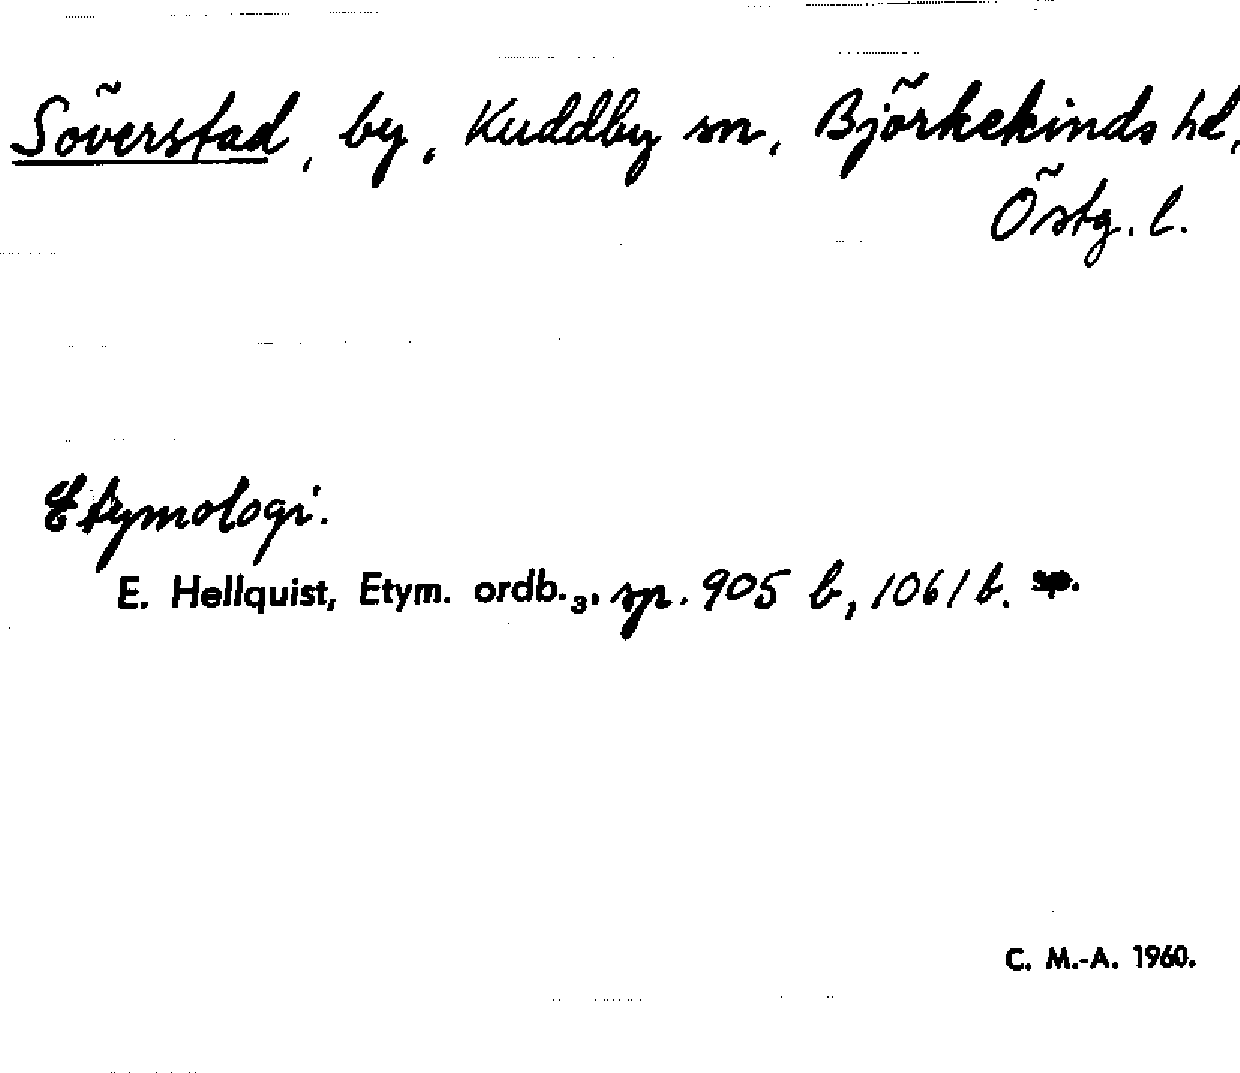 Söverstad, by, Kuddby sn, Björkekinds hd,
Östg. l.
Etymologi.
E. Hellquist, Etym. ordb.3, sp. 905 b, 1061 b.
C. M.-A. 1960.